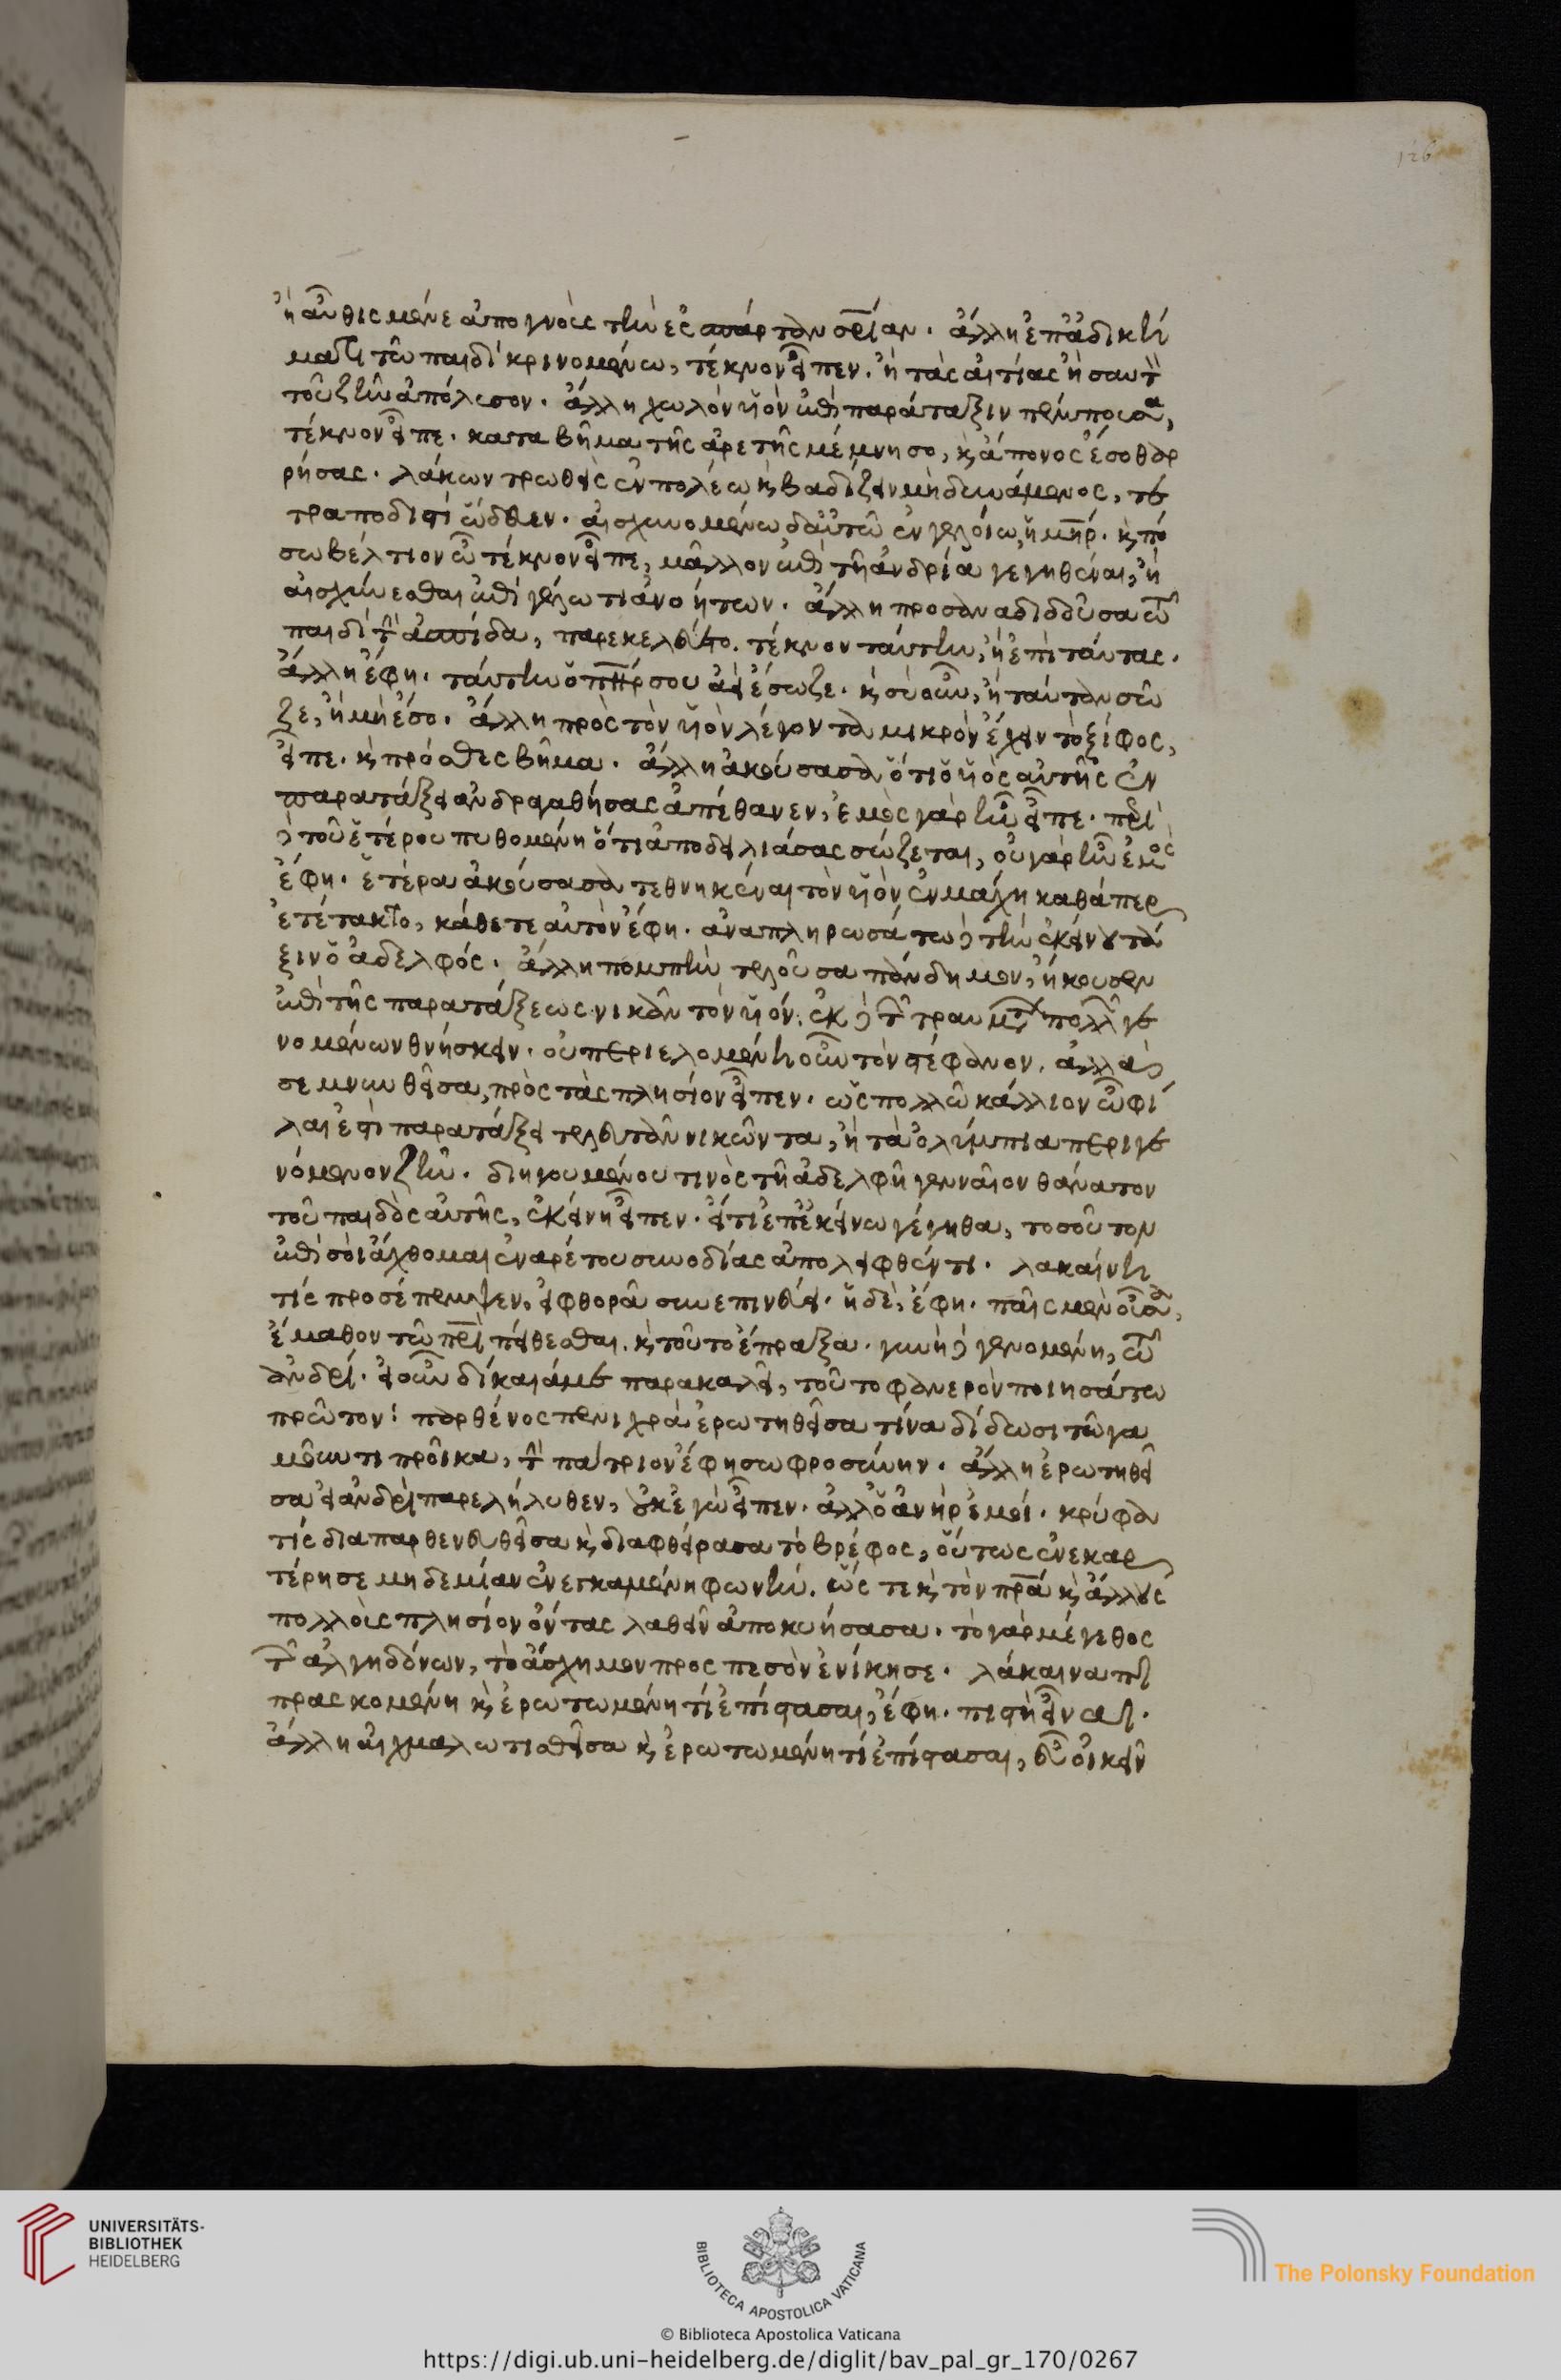 126
ἢ αὖθι μένε ἀπογνοὺς τὴν ἐς σπάρταν σρίαν. ἄλλη ἐπ' ἀδική
ματι τῶ παιδὶ κρινομένω, τέκνον εἶπεν. ἢ τὰς αἰτίας ἢ σαυτὸν
τοῦ ζῆν ἀπόλυσον. ἄλλη χωλὸν υἱὸν ἐπὶ παράταξιν πέμπουσα,
τέκνον εἶπε. κατὰ βῆμα τῆς ἀρετῆς μέμνησο, καὶ ἄπονος ἔσο θαρ
ρήσας. λάκων τρωθεὶς ἐν πολέμω καὶ βαδίζειν μὴ δυνάμενος, τε
τραποδιστὶ ὥδευεν. αἰσχυνομένω δ' αὐτῶ ἐν γελοίω, ἡ μηρ. καὶ πό
σω βέλτιον ὦ τέκνον εἶπε, μᾶλλον ἐπὶ τῆ ἀνδρία γεγηθέναι, ἢ
αἰσχύνεσθαι ἐπὶ γέλωτι ἀνοήτων. ἄλλη προσαναδιδοῦσα τῶ
παιδὶ τὴν ἀσπίδα, παρεκελεύετο. τέκνον ταύτην, ἢ ἐπὶ ταύτας.
ἄλλη ἔφη. ταύτην ὁ πηρ σου ἀεὶ ἔσωζε. καὶ σὺ οὖν, ἢ ταύταν σῶ
ζε, ἢ μὴ ἔσο. ἄλλη πρὸς τὸν υἱὸν λέγοντα μικρὸν ἔχειν τὸ ξίφος,
εἶπε. καὶ πρόσθες βῆμα. ἄλλη ἀκούσασα ὅτι ὁ υἱὸς αὐτῆς ἐν
παρατάξει ἀνδραγαθήσας ἀπέθανεν, ἐμὸς γὰρ ἦν εἶπε. περὶ
δὲ τοῦ ἑτέρου πυθομένη ὅτι ἀποδειλιάσας σώζεται, οὐ γὰρ ἦν ἐμὸς
ἔφη. ἑτέρα ἀκούσασα τεθνηκέναι τὸν υἱὸν ἐν μάχη καθάπερ
ἐτέτακτο, κάθετε αὐτὸν ἔφη. ἀναπληρωσάτω δὲ τὴν ἐκείνου τά
ξιν ὁ ἀδελφός. ἄλλη πομπὴν τελοῦσα πάνδημον, ἤκουσεν
ἐπὶ τῆς παρατάξεως νικᾶν τὸν υἱόν. ἐκ δὲ τῶν τραυμάτων πολλῶν γε
νομένων θνήσκειν. οὐ περιελομένη οὖν τὸν στέφανον. ἀλλὰ
σεμνυνθεῖσα, πρὸς τὰς πλησίον εἶπεν. ὡς πολλῶ κάλλιον ὦ φί
λαι ἐστὶ παρατάξει τελευτᾶν νικῶντα, ἢ τὰ ὀλύμπια περιγε
νόμενον ζῆν. διηγουμένου τινὸς τῆ ἀδελφῆ γενναῖον θάνατον
τοῦ παιδὸς αὐτῆς, ἐκείνη εἶπεν. ὅτι ἐπ' ἐκείνω γέγηθα, τοσοῦτον
ἐπὶ σοὶ ἄχθομαι ἐναρέτου συνοδίας ἀπολειφθέντι. λακαίνῃ
τίς προσέπεμψεν, εἰ φθορᾶ συνεπινεύει. ἡ δὲ, ἔφη. παῖς μὲν οὖσα,
ἔμαθον τῶ πρὶ πείθεσθαι. καὶ τοῦτο ἔπραξα. γυνὴ δὲ γενομένη, τῶ
ἀνδρί. εἰ οὖν δίκαιά με παρακαλεῖ, τοῦτο φανερὸν ποιησάτω
πρῶτον: παρθένος πενιχρὰ ἐρωτηθεῖσα τίνα δίδωσι τῶ γα
μοῦντι προῖκα, τὴν πάτριον ἔφη σωφροσύνην. ἄλλη ἐρωτηθεῖ
σα εἰ ἀνδρὶ παρελήλυθεν, οὐκ ἐγὼ εἶπεν. ἀλλ' ὁ ἀνὴρ ἐμοί. κρύφα
τίς διαπαρθενευθεῖσα καὶ διαφθείρασα τὸ βρέφος, οὕτως ἐνεκαρ
τέρησε μηδεμίαν ἐνεγκαμένη φωνήν. ὥς τε καὶ τὸν πρα καὶ ἄλλους
πολλοὺς πλησίον ὄντας λαθεῖν ἀποκυήσασα. τὸ γὰρ μέγεθος
τῶν ἀλγηδόνων, τὸ ἄσχημον προσπεσὸν ἐνίκησε. λάκαινα πι
πρασκομένη καὶ ἐρωτωμένη τί ἐπίστασαι, ἔφη. πιστὴ εἶναι.
ἄλλη αἰχμαλωτισθεῖσα καὶ ἐρωτωμένη τί ἐπίστασαι, εὖ οἰκεῖν
UNIVERSITÄTS-
BIBLIOTHEK
HEIDELBERG
BIBLIOTECA APOSTOLICA VATICANA
The Polonsky Foundation
© Biblioteca Apostolica Vaticana
https://digi.ub.uni-heidelberg.de/diglit/bav_pal_gr_170/0267